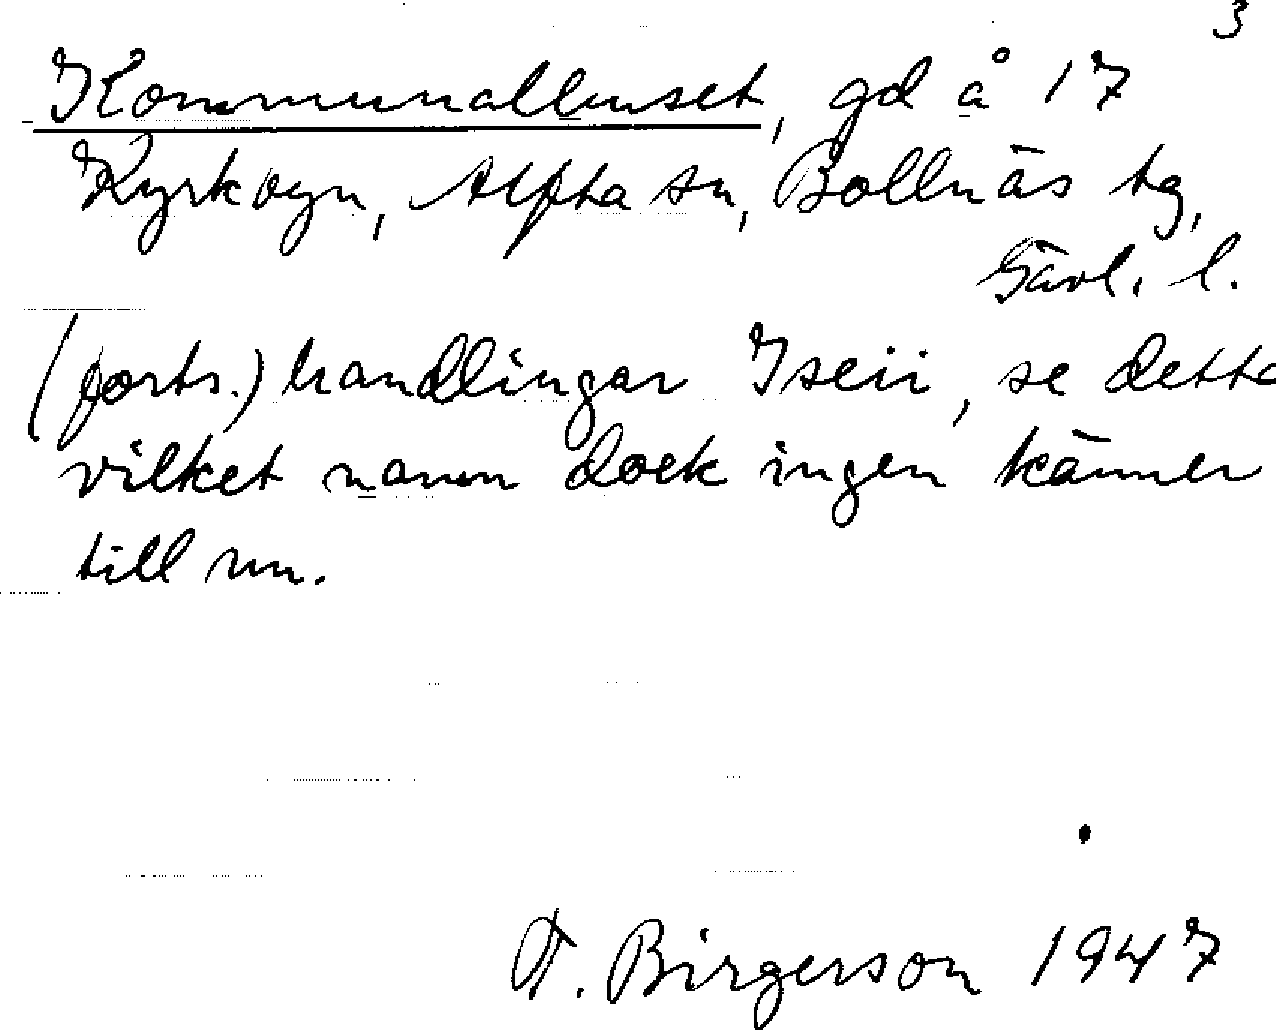 3
Kommunalhuset, gd å 17
Kyrkbyn, Alfta sn, Bollnäs tg,
Gävl. l.
(forts.) handlingar Iseii, se detta
vilket namn dock ingen känner
till nu.
T. Birgerson 1947